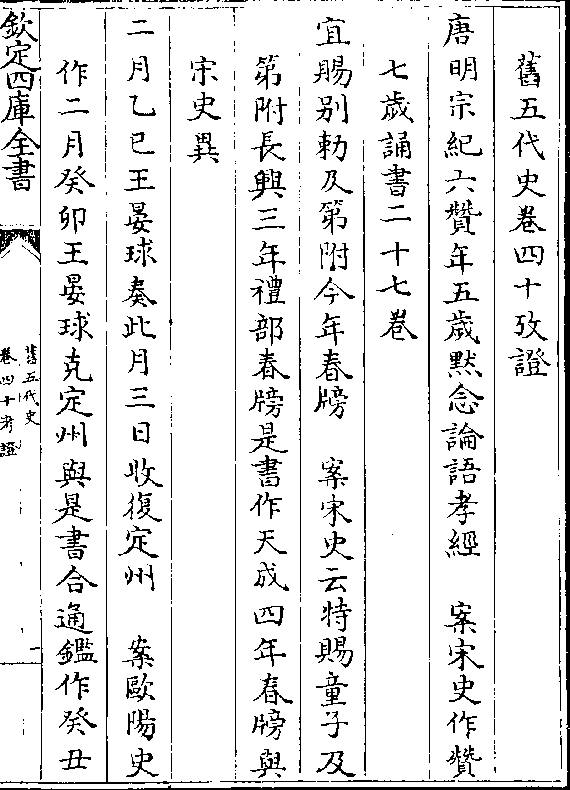 舊五代史卷四十攷證
唐明宗紀六贊年五歲黙念論語孝經　案宋史作贊
七歲誦書二十七卷
宜賜別勅及第附今年春牓　案宋史云特賜童子及
第附長興三年禮部春牓是書作天成四年春牓與
宋史異
二月乙巳王晏球奏此月三日收復定州　案歐陽史
作二月癸卯王晏球克定州與是書合通鑑作癸丑
欽定四庫全書
舊五代史
卷四十考證
一